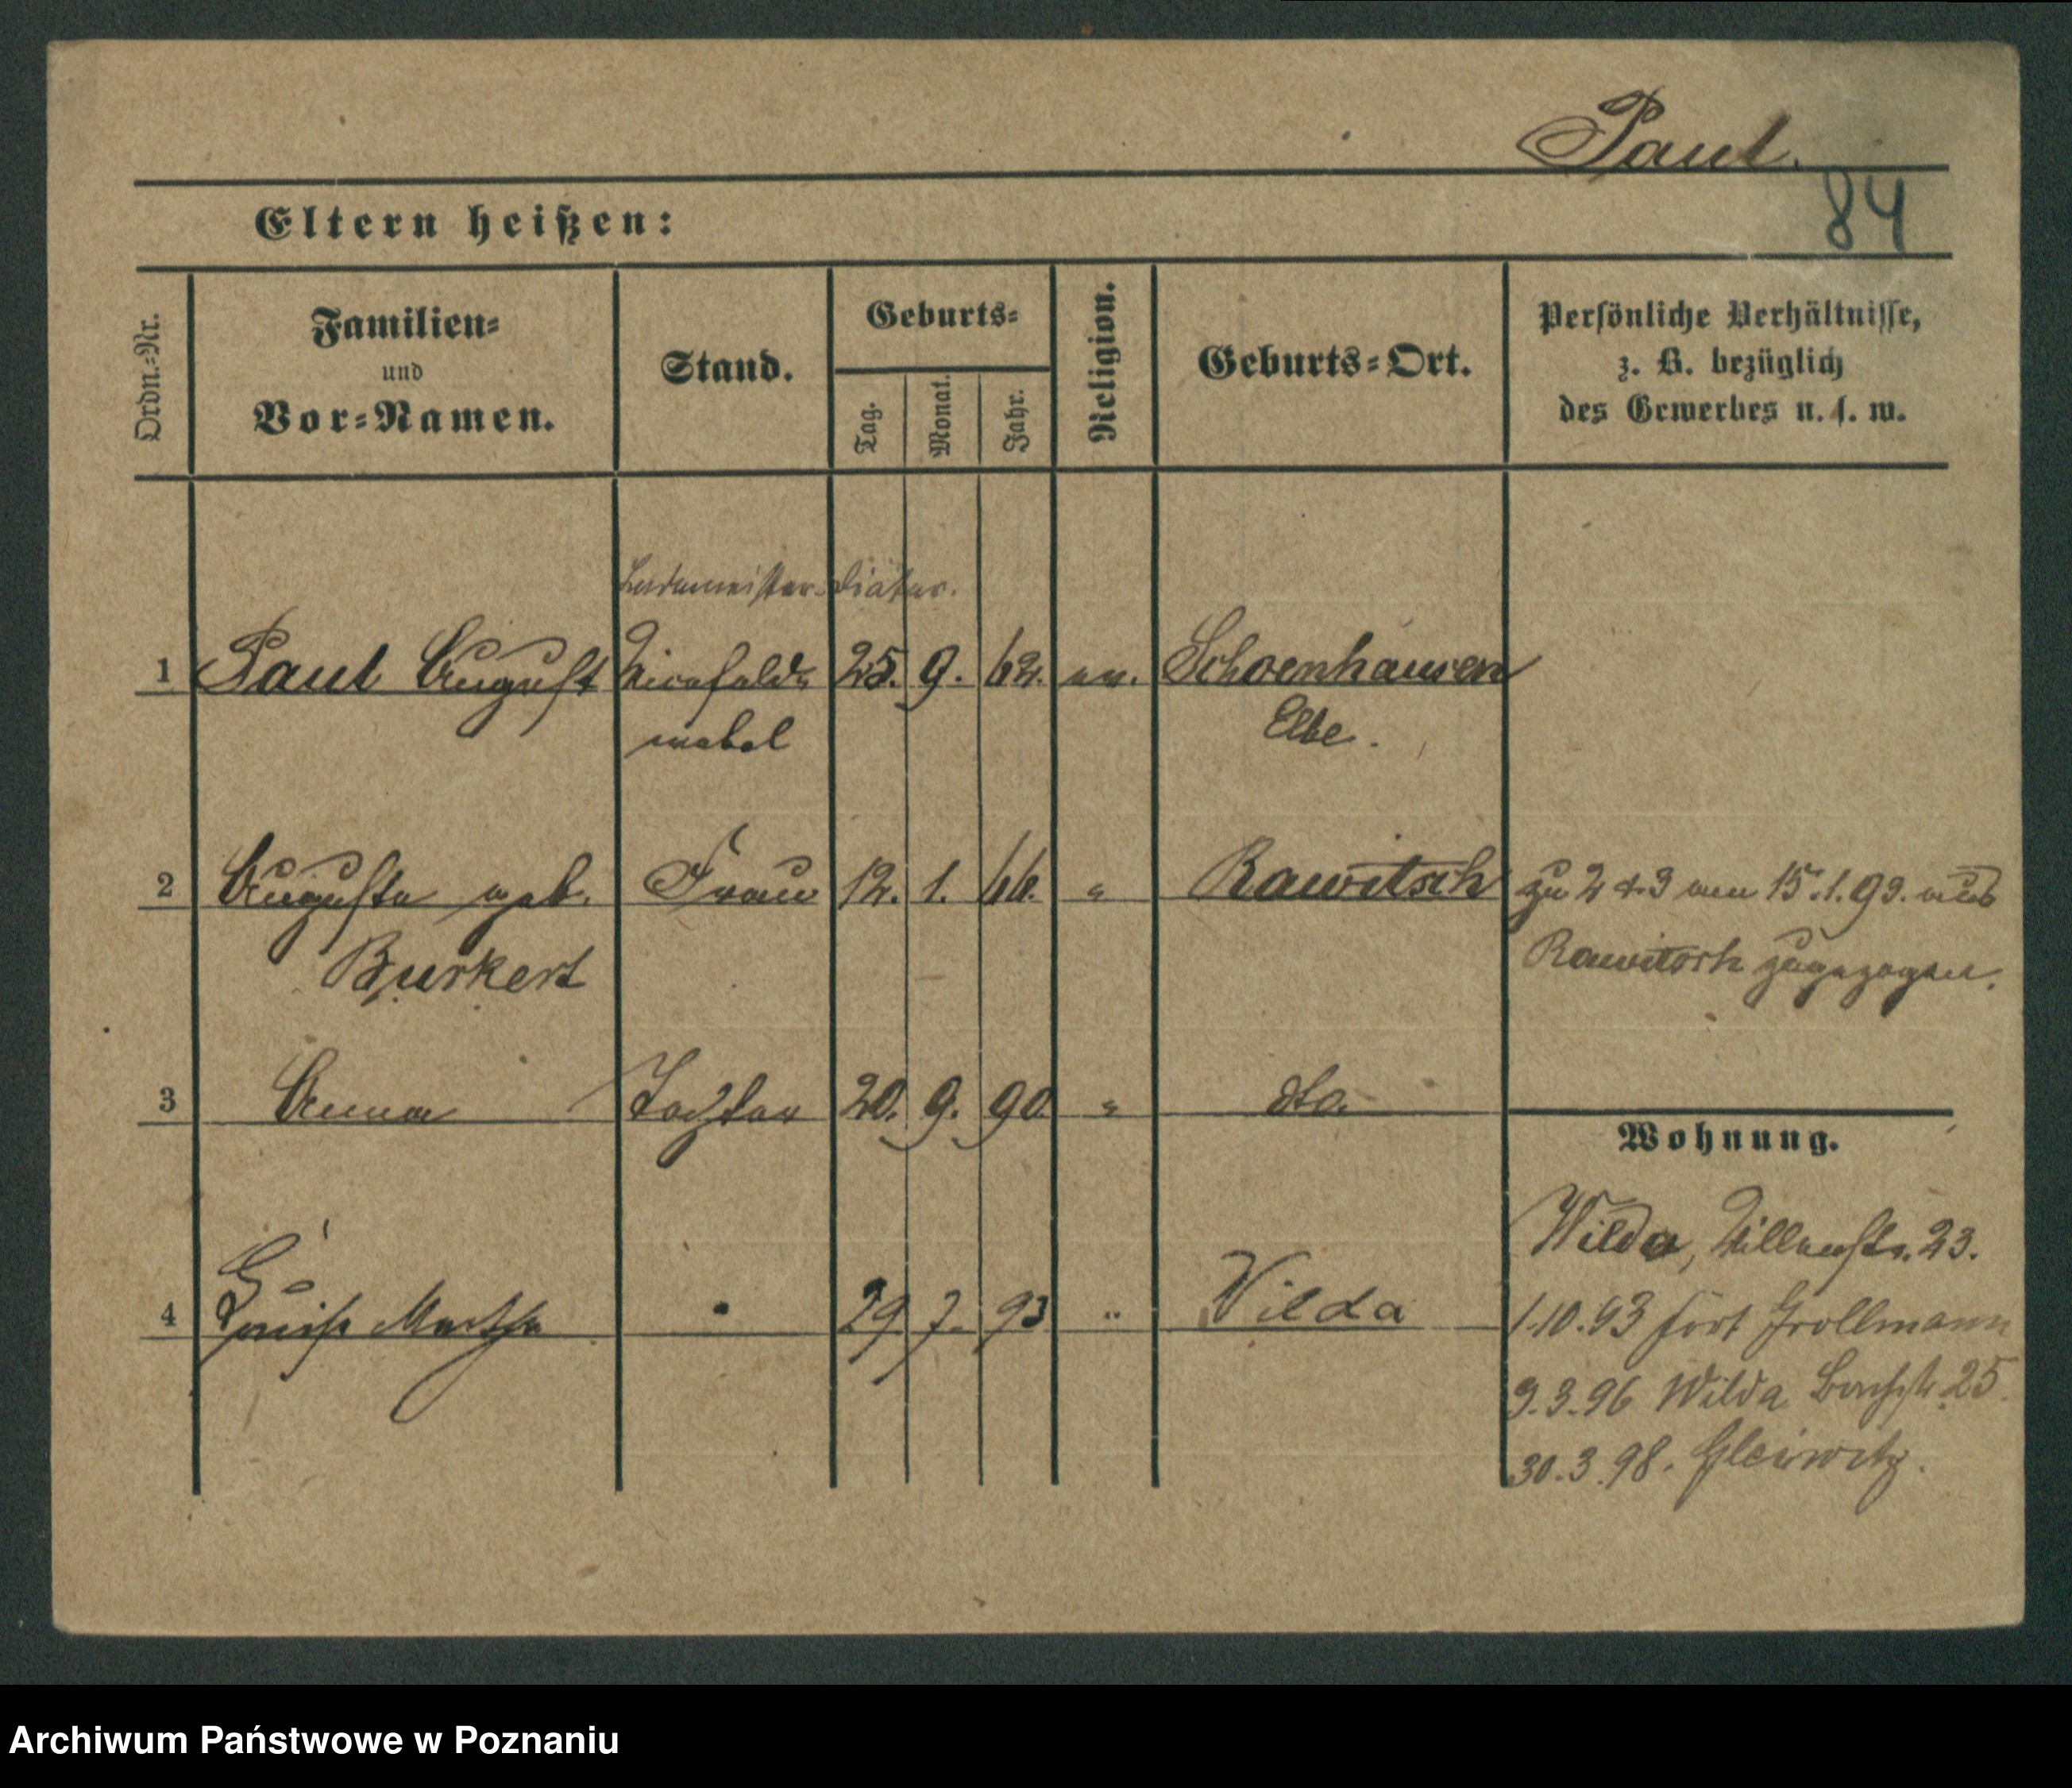 Paul.
84
Eltern heißen:
Ordn.-Nr.
Familien-
und
Vor-Namen.
Stand.
Geburts-
Tag.
Monat.
Jahr.
Religion.
Geburts-Ort.
Persönliche Verhältnisse,
z. B. bezüglich
des Gewerbes u. s. w.
Lademeister-Diätar.
1 Paul August Vicefeld- 25. 9. 62. ev. Schoenhausen
webel Elbe.
2 Auguste geb. Frau 12. 1. 66. " Rawitsch zu 2 & 3 am 15.1.93. aus
Burkert Rawitsch zugezogen.
3 Anna Tochter 20. 9. 90 " dto.
Wohnung.
Wilda, Villenstr. 23.
4 Martha " 29 7. 93 " Wilda 1.10.93 Fort Grollmann
3.3.96 Wilda 25.
30.3.98. Gleiwitz.
Archiwum Państwowe w Poznaniu